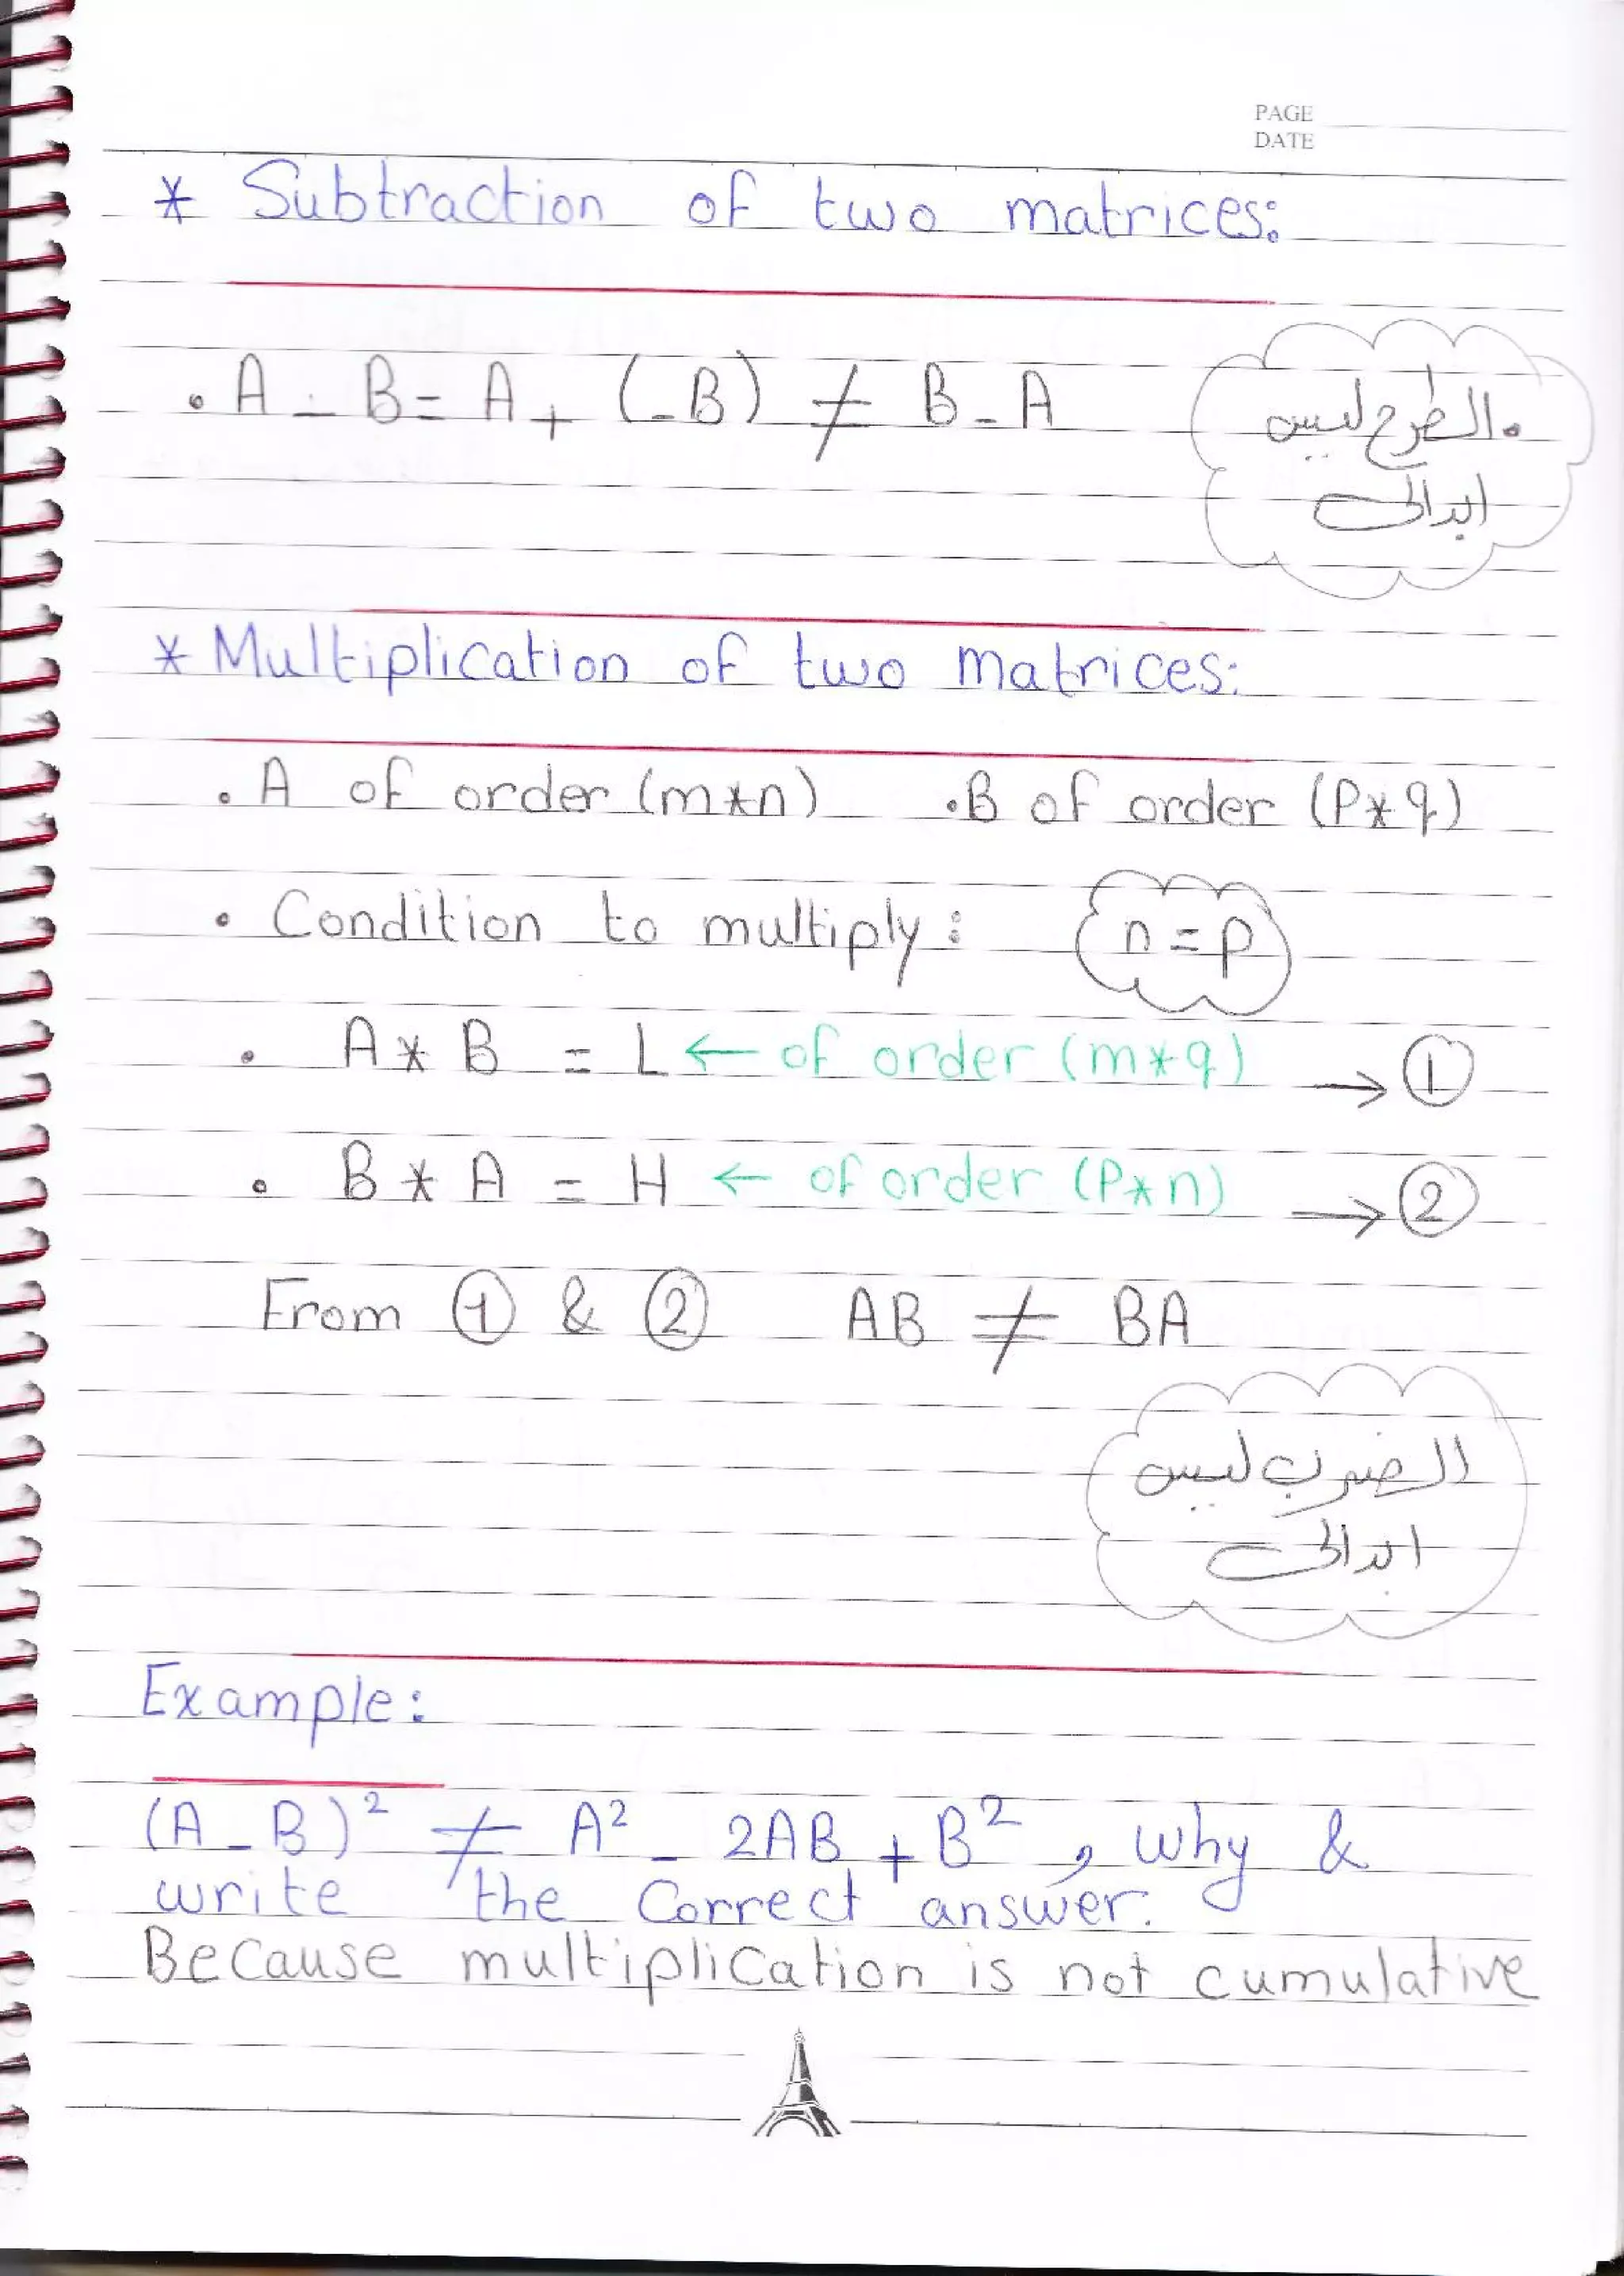 PAGE
DATE
* Subtraction of two matrices:
• A - B = A + (-B) ≠ B - A
• الطرح ليس
ابدالى
* Multiplication of two matrices:
• A of order (m*n) • B of order (P*q)
• Condition to multiply : n = p
• A * B = L ← of order (m*q) → ①
• B * A = H ← of order (P*n) → ②
From ① & ② AB ≠ BA
الضرب ليس
ابدالى
Example:
(A - B)² ≠ A² - 2AB + B² , why &
write the Correct answer.
Because multiplication is not cumulative